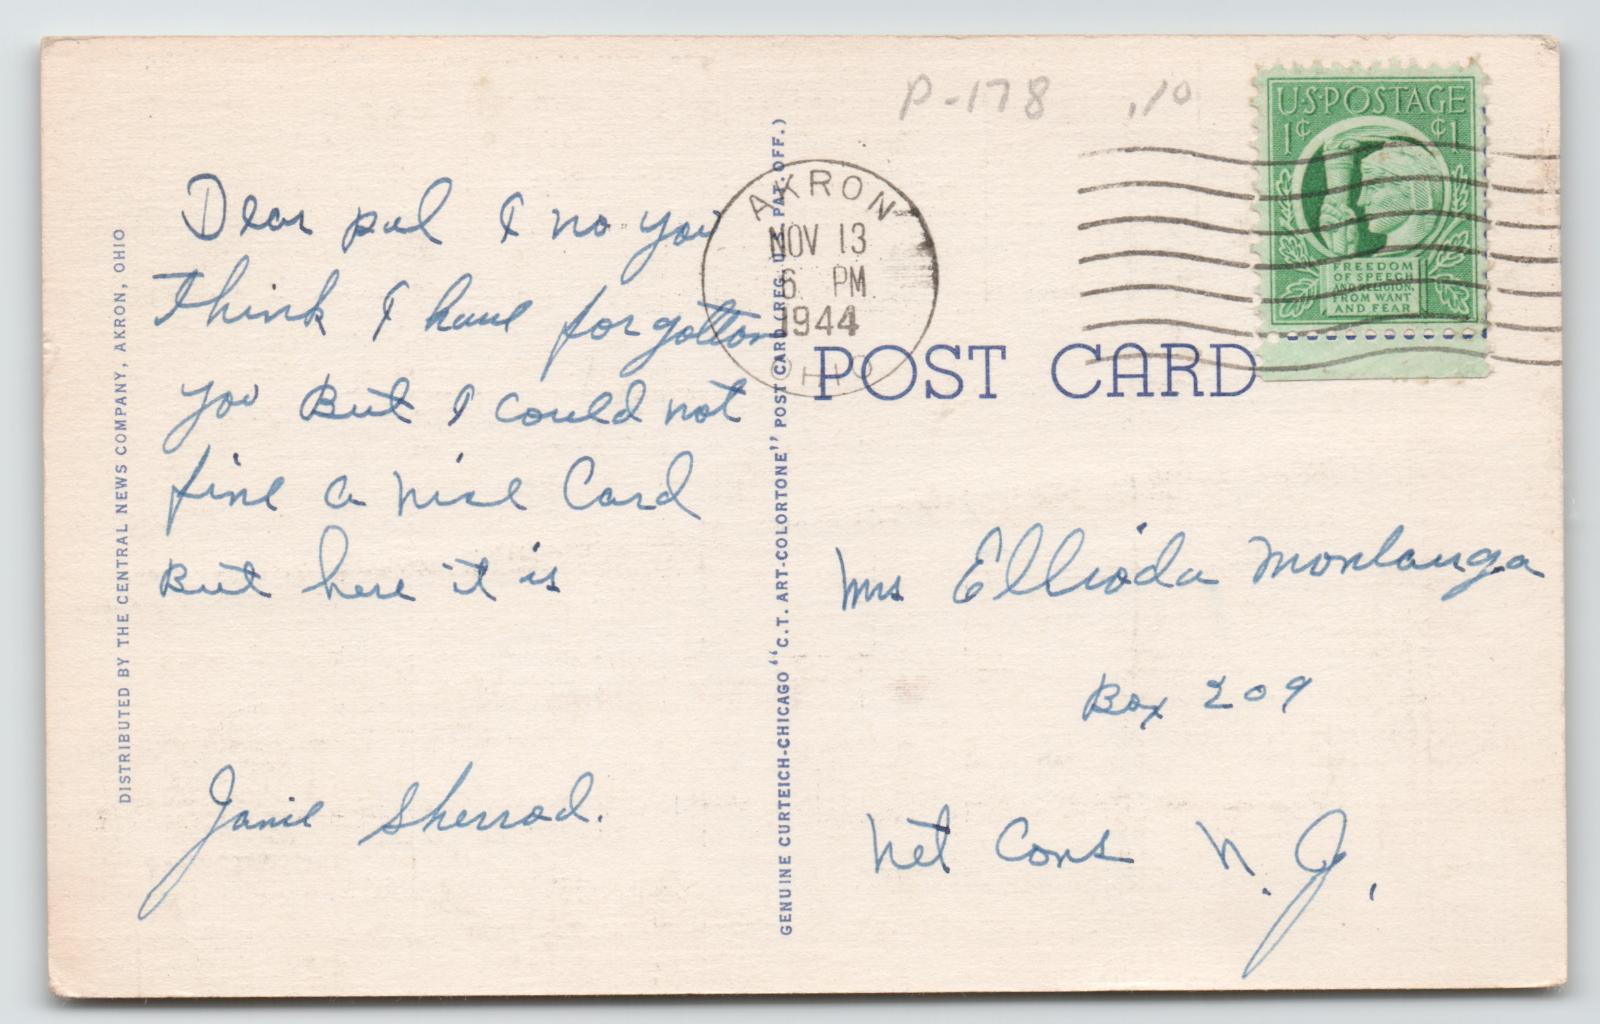 P-178 .10
U·S·POSTAGE
1¢ ¢1
FREEDOM
OF SPEECH
AND RELIGION,
FROM WANT
AND FEAR
AKRON
NOV 13
6 PM
1944
OHIO
POST CARD
Dear pal I no you
think I have forgotton
you But I could not
fine a nise Card
But here it is
Janie Sherrod.
Mrs Ellioda
Box 209
Net Cons N. J.
DISTRIBUTED BY THE CENTRAL NEWS COMPANY, AKRON, OHIO
GENUINE CURTEICH-CHICAGO "C.T. ART-COLORTONE" POST CARD (REG. U.S. PAT. OFF.)